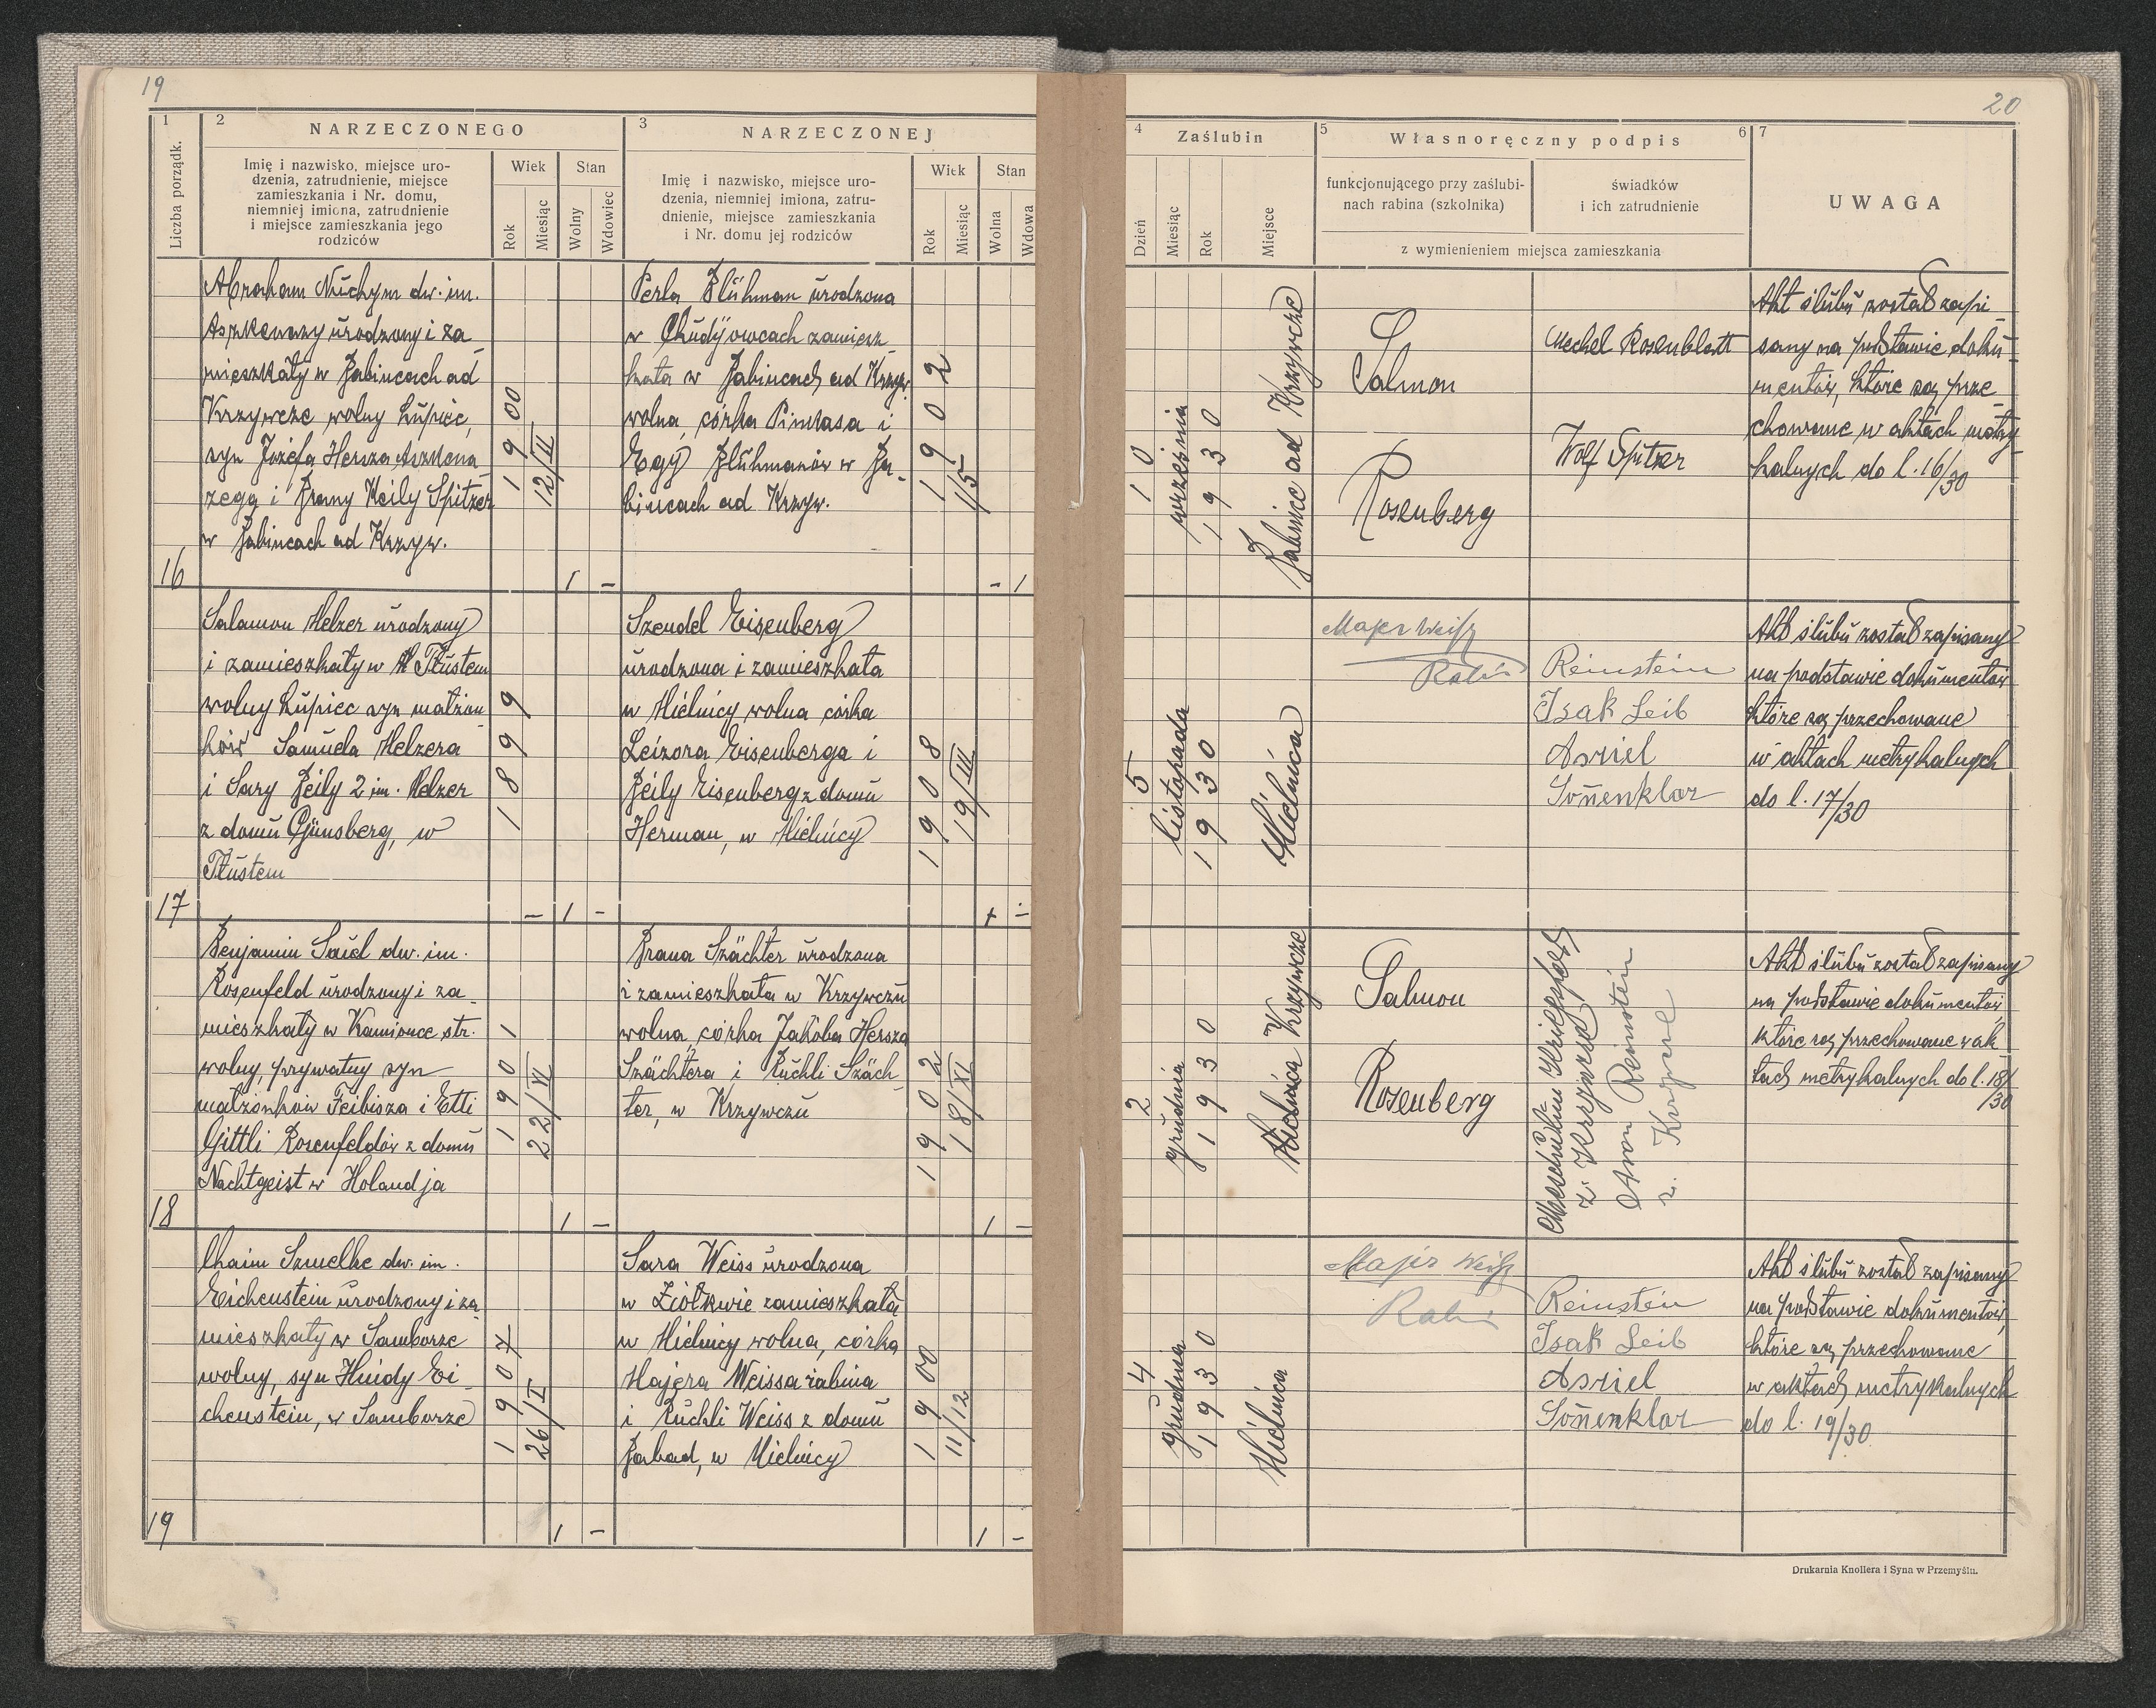 19
20
1
2
NARZECZONEGO
3
NARZECZONEJ
4
Zaślubin
5
Własnoręczny podpis
6
7
Liczba porządk.
Imię i nazwisko, miejsce uro-
dzenia, zatrudnienie, miejsce
zamieszkania i Nr. domu,
niemniej imiona, zatrudnienie
i miejsce zamieszkania jego
rodziców
Wiek
Rok
Miesiąc
Stan
Wolny
Wdowiec
Imię i nazwisko, miejsce uro-
dzenia, niemniej imiona, zatru-
dnienie, miejsce zamieszkania
i Nr. domu jej rodziców
Wiek
Rok
Miesiąc
Stan
Wolna
Wdowa
Dzień
Miesiąc
Rok
Miejsce
funkcjonującego przy zaślubi-
nach rabina (szkolnika)
świadków
i ich zatrudnienie
z wymienieniem miejsca zamieszkania
UWAGA
16
Abraham Nuchym dw. im.
Aszkenazy urodzony i za
mieszkały w Babincach ad
Krzywcze wolny kupiec,
syn Józefa Hersza Aszkena
zego i Brany Keily Spitzer
w Babincach ad Krzyw.
1900
12/II
1 -
Perla Blühman urodzona
w Chudyjowcach zamiesz
kała w Babincach ad Krzyw.
wolna, córka Pinkasa i
Egy Blühmanów w Ba-
bincach ad Krzyw.
1902
- 1
10
września
1930
Babince ad Krzywcze
Salmon
Rosenberg
Mechel Rosenblatt
Wolf Spitzer
Akt ślubu został zapi
sany na podstawie doku
mentów, które są prze
chowane w aktach metry
kalnych do l. 16/30
17
Salamon Helzer urodzony
i zamieszkały w Tłustem
wolny kupiec syn małżon
ków Samuela Helzera
i Sary Beily 2 im. Helzer
z domu Günsberg, w
Tłustem
1899
- 1 -
Szendel Eisenberg
urodzona i zamieszkała
w Mielnicy wolna córka
Leizora Eisenberga i
Beily Eisenberg z domu
Herman, w Mielnicy
1908
19/III
5
listopada
1930
Mielnica
Majer Weiss
Rabin
Reinstein
Isak Leib
Asriel
Sonenklar
Akt ślubu został zapisany
na podstawie dokumentów
które są przechowane
w aktach metrykalnych
do l. 17/30
18
Benjamin Saul dw. im.
Rosenfeld urodzony i za
mieszkały w Kamionce str.
wolny, prywatny syn
małżonków Feibisza i Etti
Gittli Rosenfeldów z domu
Nachtgeist w Holandja
1901
22/VI
1 -
Brana Szächter urodzona
i zamieszkała w Krzywczu
wolna, córka Jakóba Hersza
Szächtera i Ruchli Szäch
ter, w Krzywczu
1902
18/XI
1 -
2
grudnia
1930
Krzywcze
Salmon
Rosenberg
z. Krzywcza
Aron Reinstein
Akt ślubu został zapisany
na podstawie dokumentów,
które są przechowane w ak
tach metrykalnych do l. 18/30
19
Chaim Szmelke dw. im.
Eichenstein urodzony i za
mieszkały w Samborze
wolny, syn Hindy Ei
chenstein, w Samborze
1907
26/I
1 -
Sara Weiss urodzona
w Żółkwie zamieszkała
w Mielnicy wolna, córka
Majera Weissa rabina
i Ruchli Weiss z domu
Babad, w Mielnicy
1900
11/12
1 -
4
grudnia
1930
Mielnica
Majer Weiss
Rabin
Reinstein
Isak Leib
Asriel
Sonenklar
Akt ślubu został zapisany
na podstawie dokumentów,
które są przechowane
w aktach metrykalnych
do l. 19/30
Drukarnia Knollera i Syna w Przemyślu.